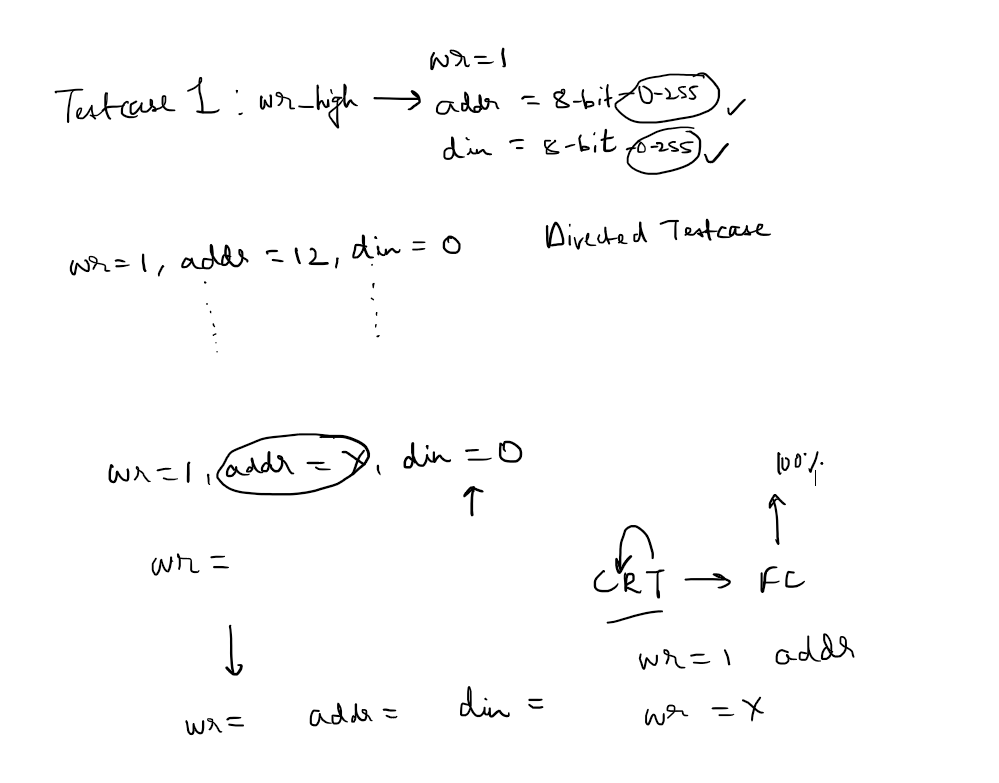 wr=1
Testcase 1 : wr_high → addr = 8-bit-0-255 ✓
din = 8-bit-0-255 ✓
Directed Testcase
wr=1, addr =12, din = 0
wr=1, addr = X, din = 0
↑
100%
↑
wr =
CRT → FC
↓
wr=1 addr
wr= addr= din =
wr = X